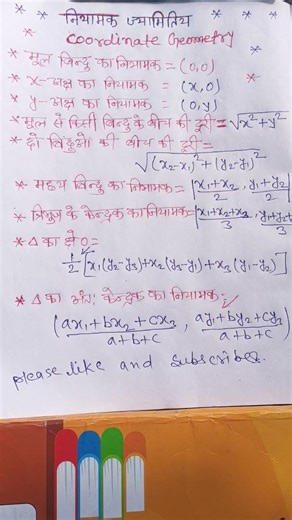 नियामक ज्यामितिय
Coordinate Geometry
* मूल बिन्दु का नियामक = (0,0)
* x-अक्ष का नियामक = (x,0)
* y-अक्ष का नियामक = (0,y)
* मूल से किसी बिन्दु के बीच की दूरी = √x²+y²
* दो बिंदुओ की बीच की दूरी =
√(x₂-x₁)²+(y₂-y₁)²
* मध्य बिन्दु का नियामक = |x₁+x₂/2, y₁+y₂/2|
* त्रिभुज के केन्द्रक का नियामक = |x₁+x₂+x₃/3, y₁+y₂+/3
* Δ का क्षे० =
1/2 [x₁(y₂-y₃)+x₂(y₃-y₁)+x₃(y₁-y₂)]
* Δ का अंतः केन्द्रक का नियामक
(ax₁+bx₂+cx₃/a+b+c, ay₁+by₂+cy₃/a+b+c)
please like and subscribe.